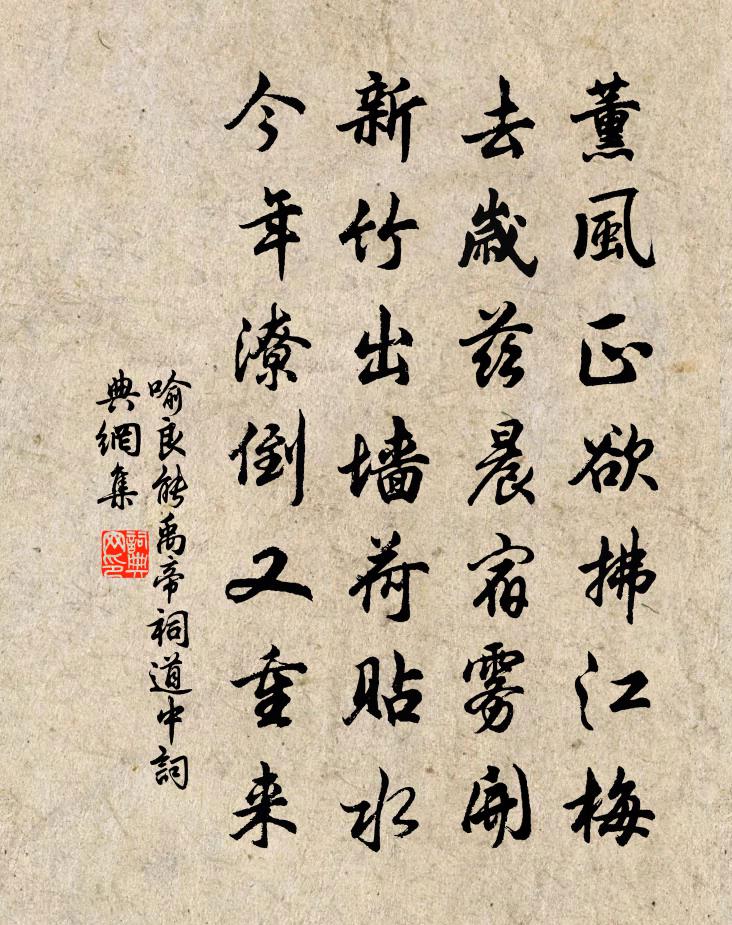 薫風正欲拂江梅
去歲茲晨宿雾開
新竹出墙荷貼水
今年潦倒又重来
喻良能禹帝祠道中詞
典網集
詞典
网印